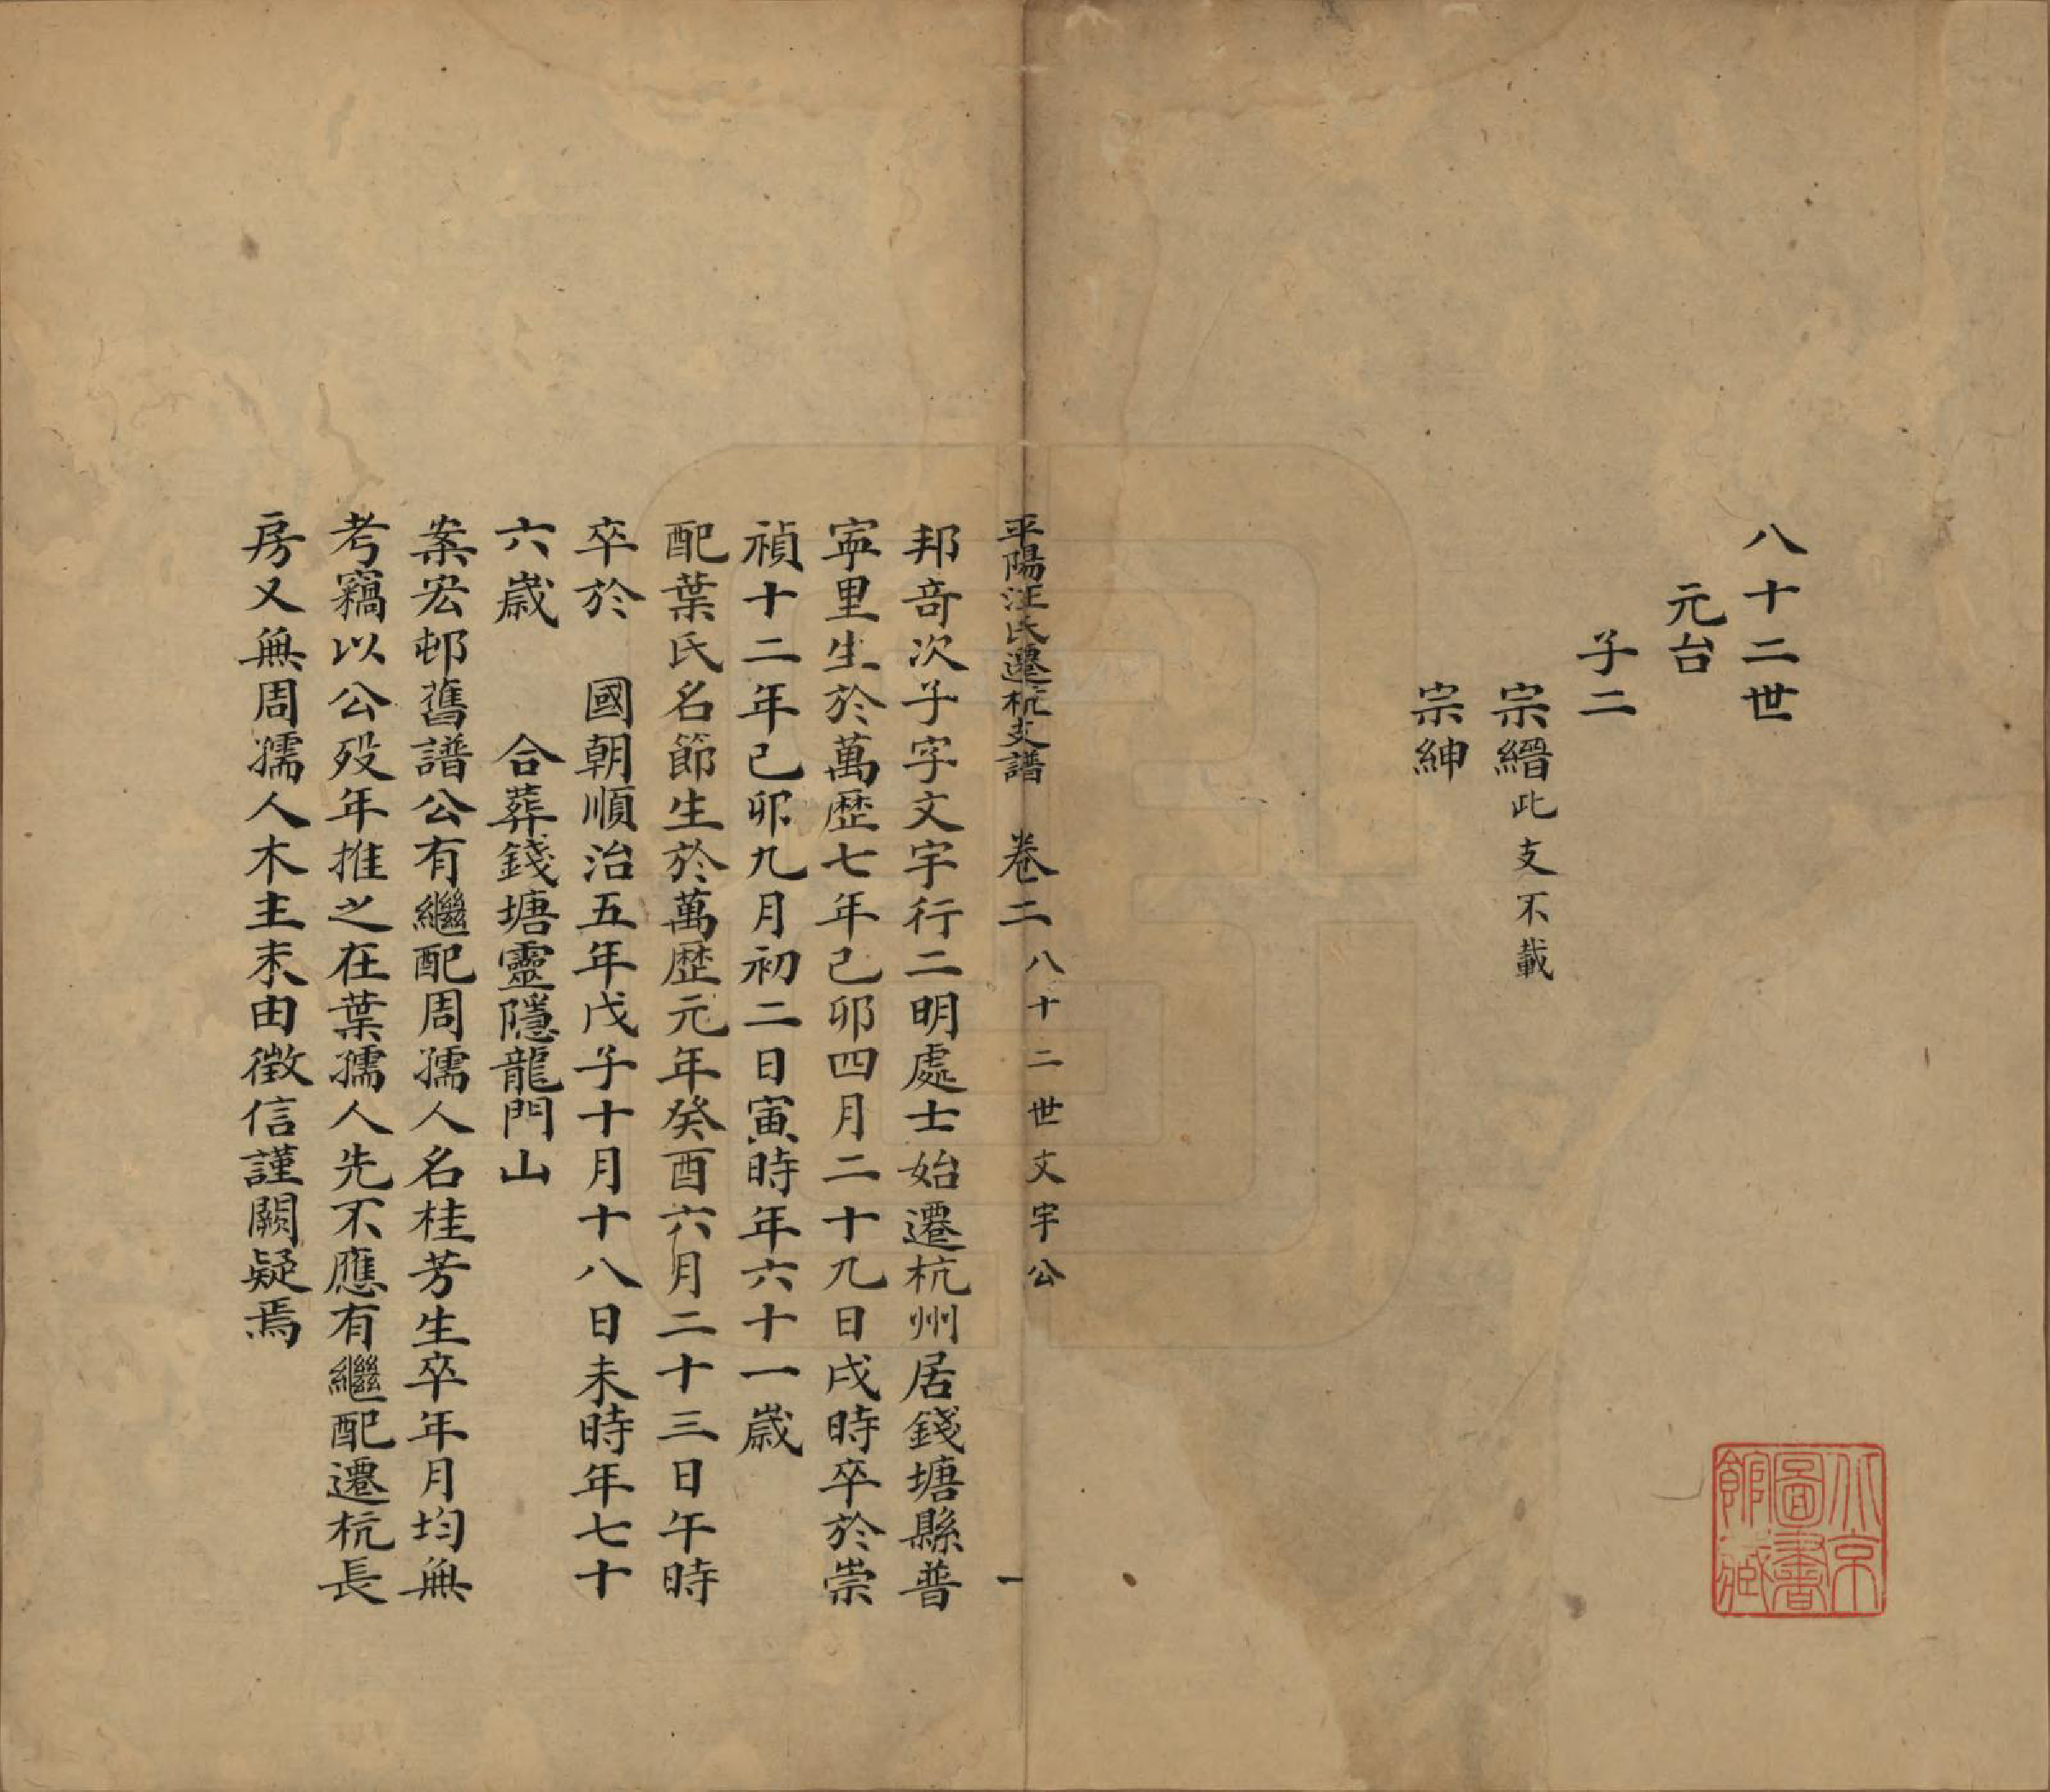 八十二世
元台
子二
宗縉此支不載
宗紳
北京圖書館藏
平陽汪氏遷杭支譜 卷二 八十二世文宇公 一
邦竒次子字文宇行二明處士始遷杭州居錢塘縣普
寍里生於萬歷七年己卯四月二十九日戌時卒於崇
禎十二年己卯九月初二日寅時年六十一歲
配葉氏名節生於萬歷元年癸酉六月二十三日午時
卒於 國朝順治五年戊子十月十八日未時年七十
六歲 合葬錢塘靈隱龍門山
案宏邨舊譜公有繼配周孺人名桂芳生卒年月均無
考竊以公歿年推之在葉孺人先不應有繼配遷杭長
房又無周孺人木主末由徵信謹闕疑焉